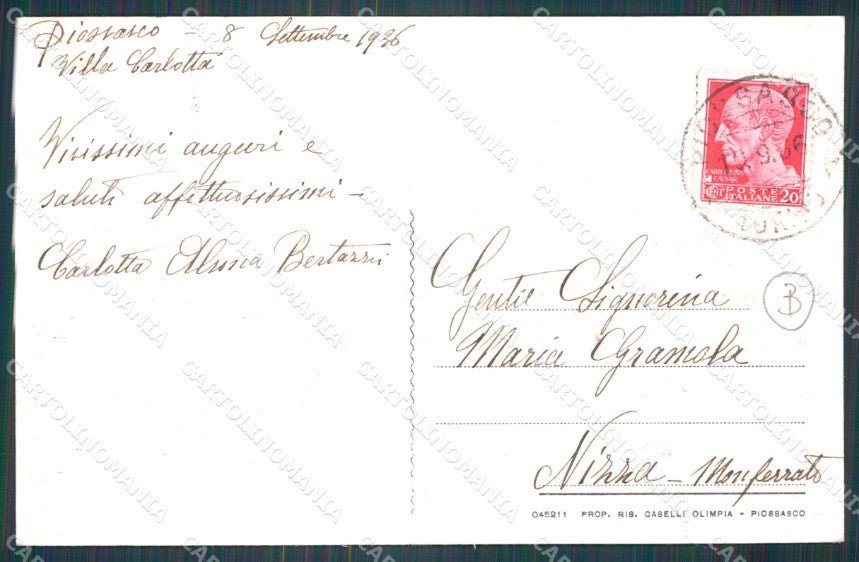 Piossasco - 8 Settembre 1936
Villa Carlotta
Vivissimi auguri e
saluti affettuosissimi -
Carlotta Bertazzi
CAIVS IVLIVS
CAESAR
POSTE
ITALIANE 20
PIOSSASCO
9.36
TORINO
B
Gentil Signorina
Maria Gramola
Nizza - Monferrato
045211 PROP. RIS. CASELLI OLIMPIA - PIOSSASCO
CARTOLINOMANIA